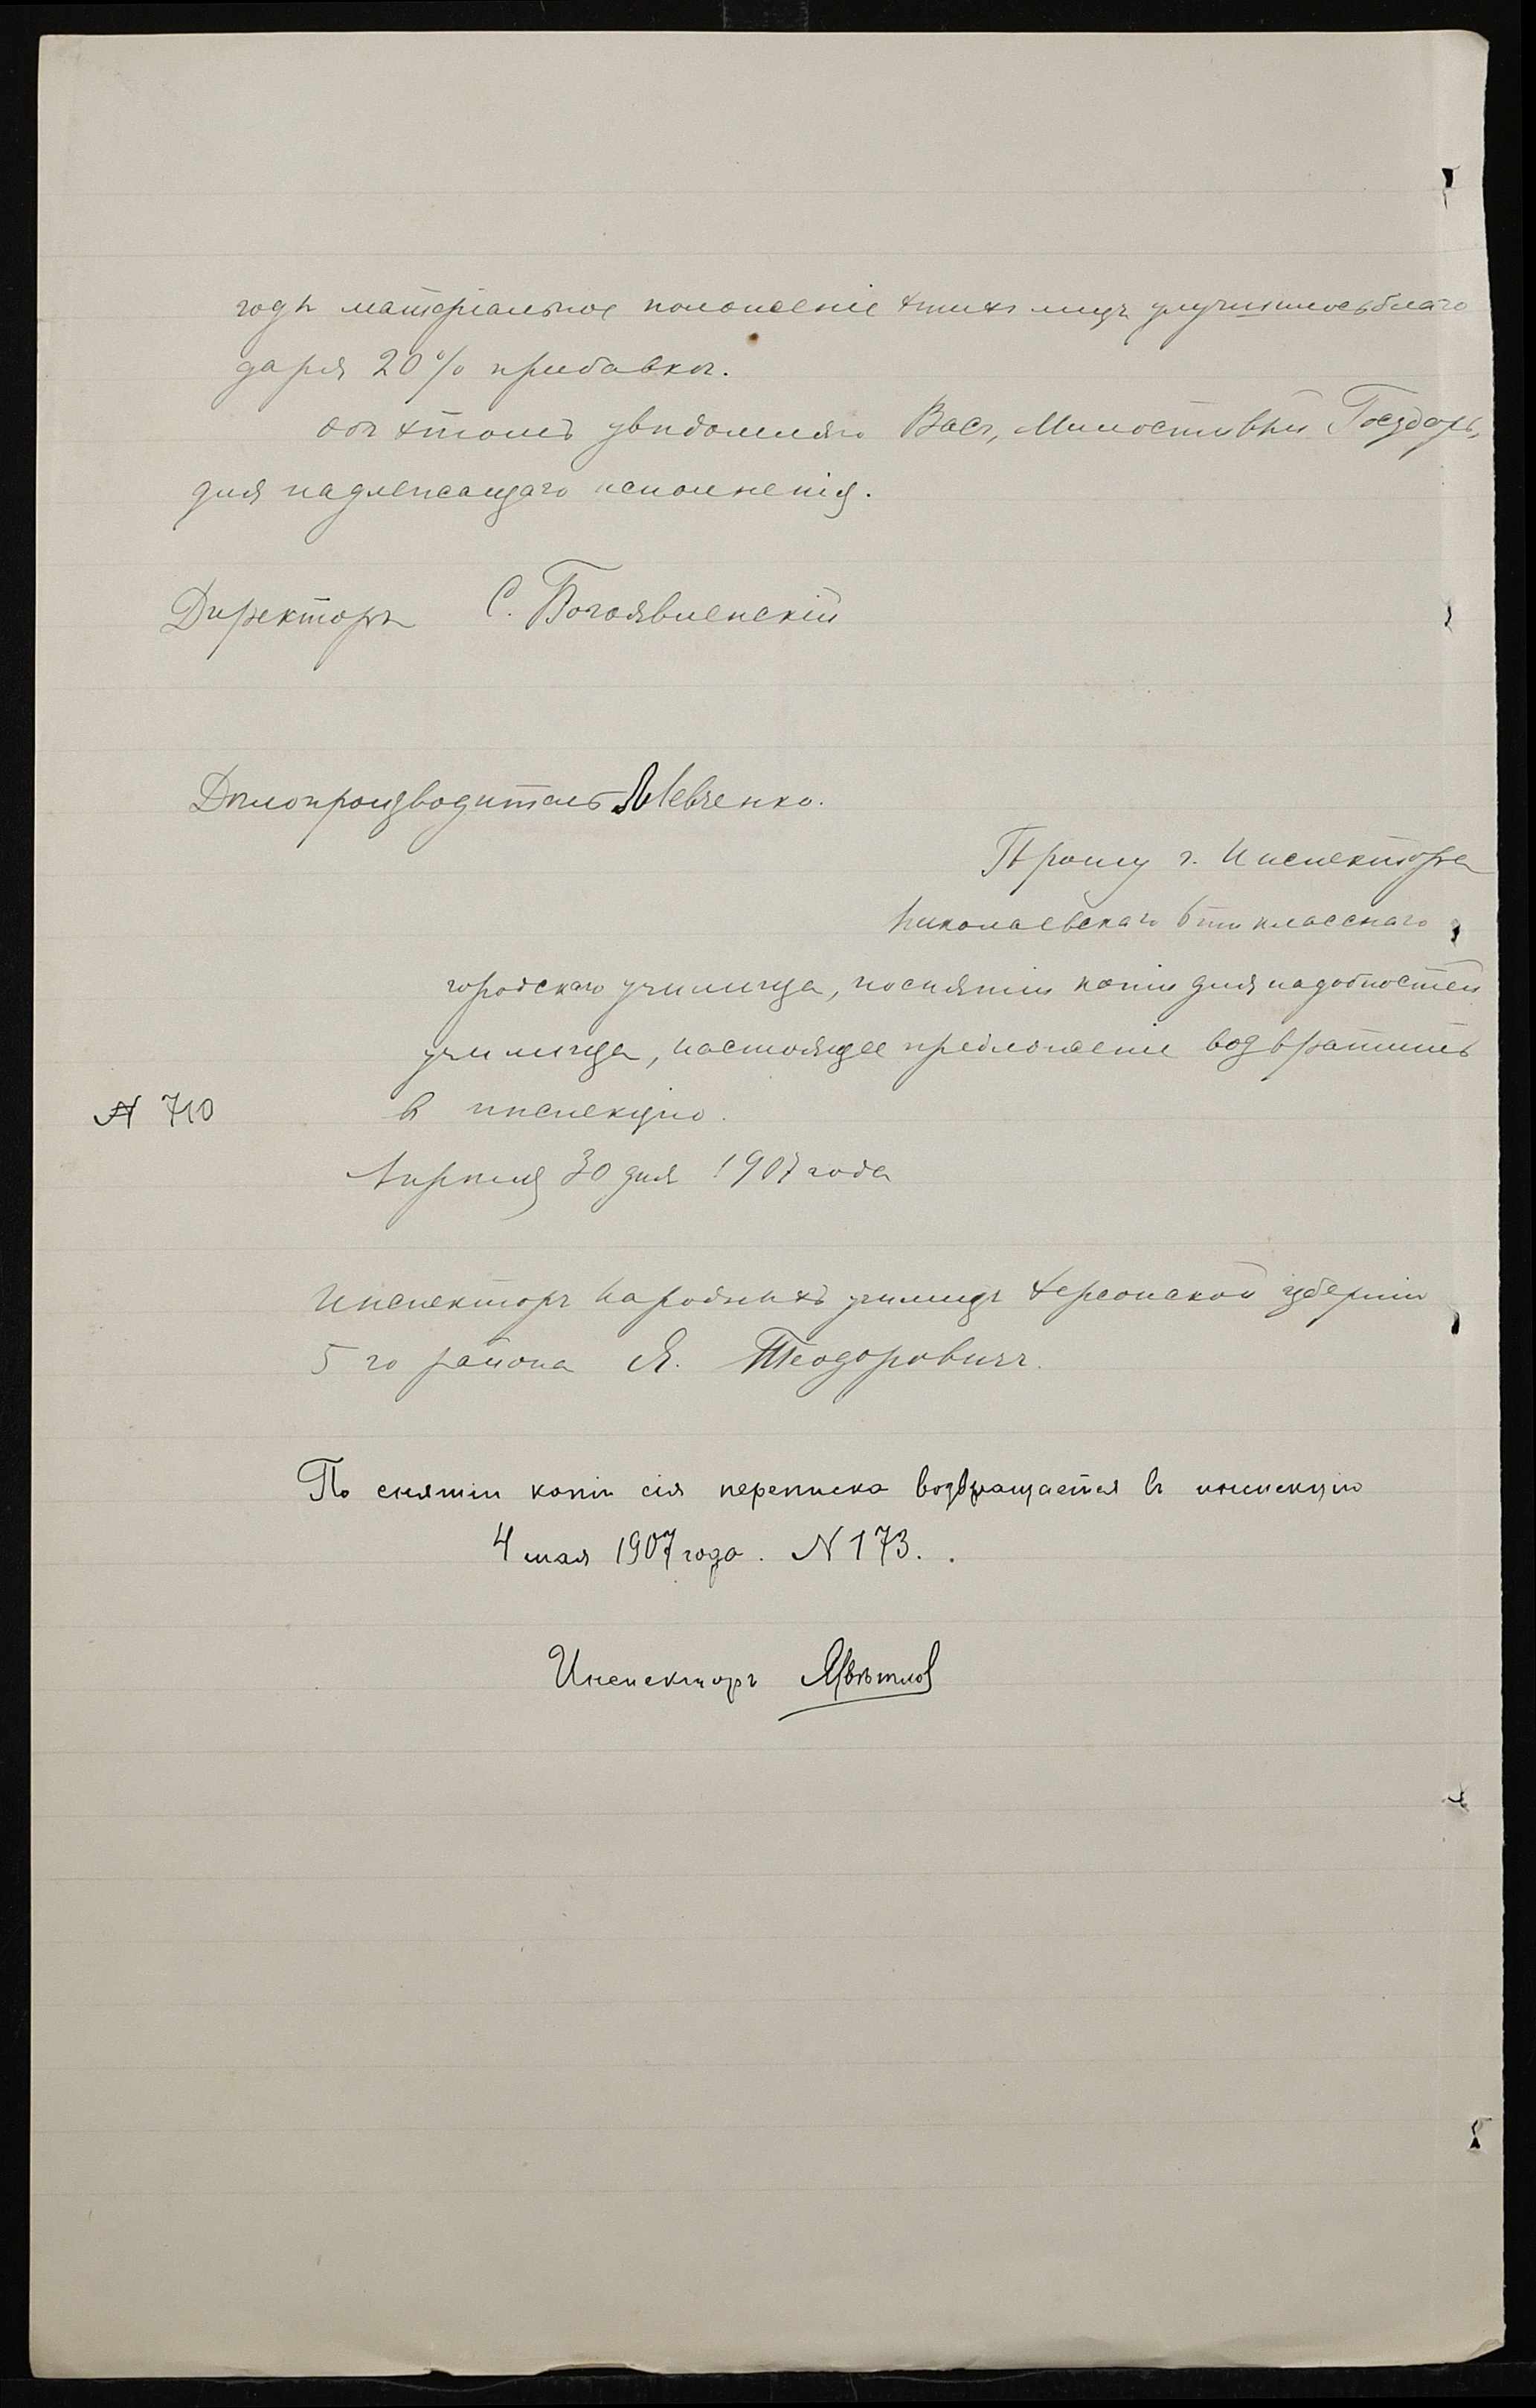 году матеріальное положеніе этихъ лицъ улучшилось благо
даря 20% прибавкѣ.
Объ этомъ увѣдомляю Васъ, Милостивый Государь,
для надлежащаго исполненія.
Директоръ С. Богоявленскій
Дѣлопроизводитель Левченко.
Прошу г. Инспектора
Николаевскаго 6ти класснаго
городского училища, по снятіи копіи для надобностей
училища, настоящее предложеніе возвратить
№ 710 въ инспекцію.
Апрѣля 30 дня 1907 года
Инспекторъ народныхъ училищъ Херсонской губерніи
5 го района Я. Теодоровичъ.
По снятіи копіи сія переписка возвращается въ инспекцію
4 мая 1907 года. № 173.
Инспекторъ